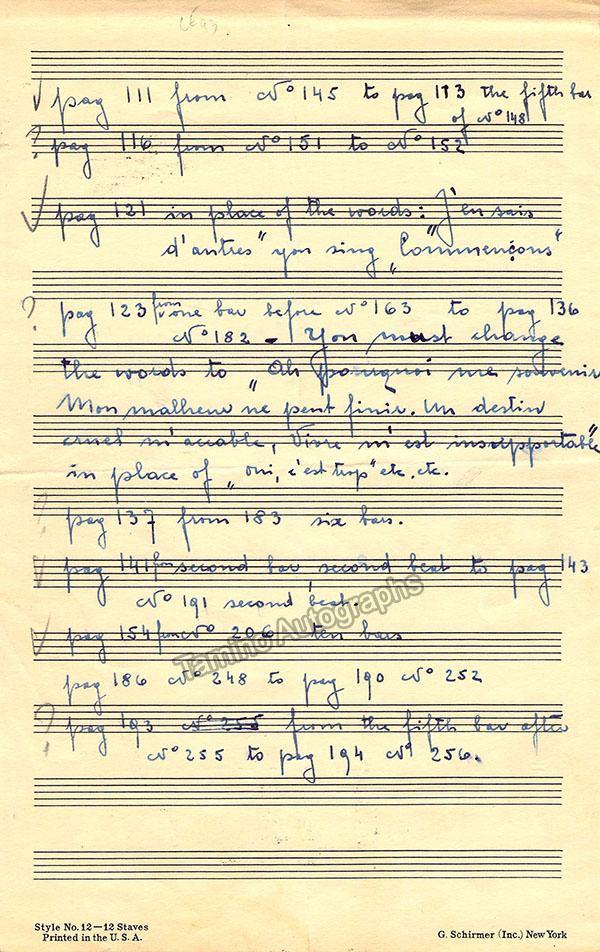 pag 111 from No 145 to pag 113 the fifth bar
of No 148
pag 116 from No 151 to No 152
pag 121 in place of the words: "J'en sais
d'autres" you sing "Commençons"
pag 123 from one bar before No 163 to pag 136
No 182 - You must change
the words to "Ah pourquoi me souvenir
Mon malheur ne peut finir. Un destin
cruel m'accable, Vivre m'est insupportable"
in place of "oui, c'est trop" etc. etc.
? pag 137 from 183 six bars.
pag 141 from second bar second beat to pag 143
No 191 second beat.
pag 154 from No 206 ten bars
Tamino Autographs
pag 186 No 248 to pag 190 No 252
? pag 193 No 255 from the fifth bar after
No 255 to pag 194 No 256.
Style No. 12—12 Staves
Printed in the U. S. A.
G. Schirmer (Inc.) New York